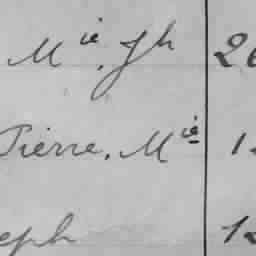 Mie. Jh 26
Pierre, Mie 1
eph 12